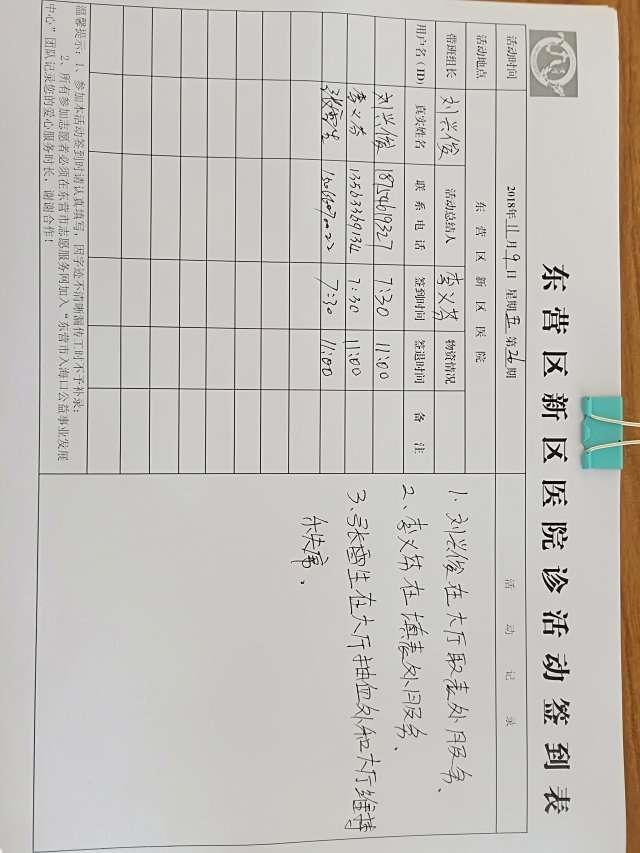 东营区新区医院诊活动签到表
活动时间 2018年11月9日 星期五 第26期 活动记录
活动地点 东营区新区医院
带班组长 刘兴俊 活动总结人 李义芬 物资情况
用户名(ID) 真实姓名 联系电话 签到时间 签退时间 备注
刘兴俊 18754619327 7:30 11:00
李义芬 13563369134 7:30 11:00
张雪生 7:30 11:00
1、刘兴俊在大厅取表处服务、
2、李义芬在填表处服务、
3、张雪生在大厅抽血处和大厅维持
温馨提示:1、参加本活动签到时请认真填写,因字迹不清晰漏传工时不予补录;
2、所有参加志愿者必须在东营市志愿服务网加入“东营市入海口公益事业发展
中心”团队记录您的爱心服务时长,谢谢合作!